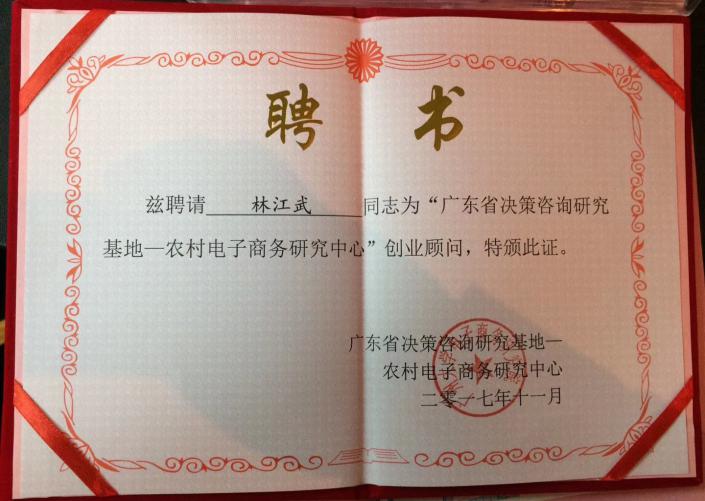 聘 书
兹聘请 林江武 同志为“广东省决策咨询研究
基地—农村电子商务研究中心”创业顾问，特颁此证。
广东省决策咨询研究基地—
农村电子商务研究中心
二零一七年十一月